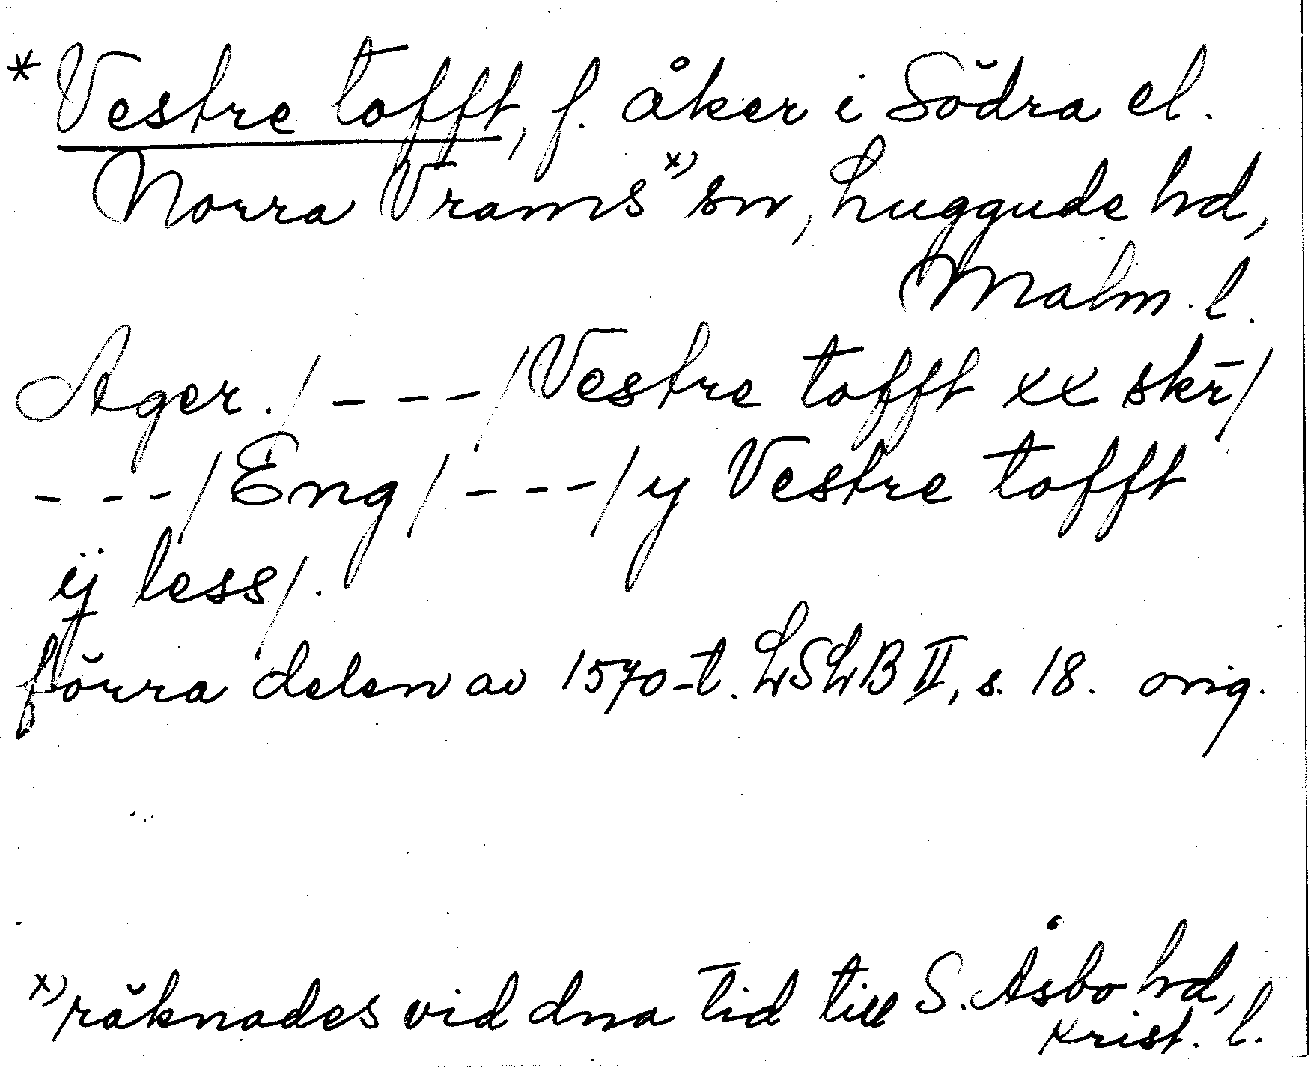 * Vestre tofft, f. åker i Södra el.
Norra Vrams x) sn, Luggude hd,
Malm. l.
Ager. / - - - / Vestre tofft xx skr̄ /
- - - / Eng / - - - / y Vestre tofft
ÿ less /.
förra delen av 1570-t. LSLB II, s. 18. orig.
x) räknades vid dna tid till S. Åsbo hd,
Krist. l.